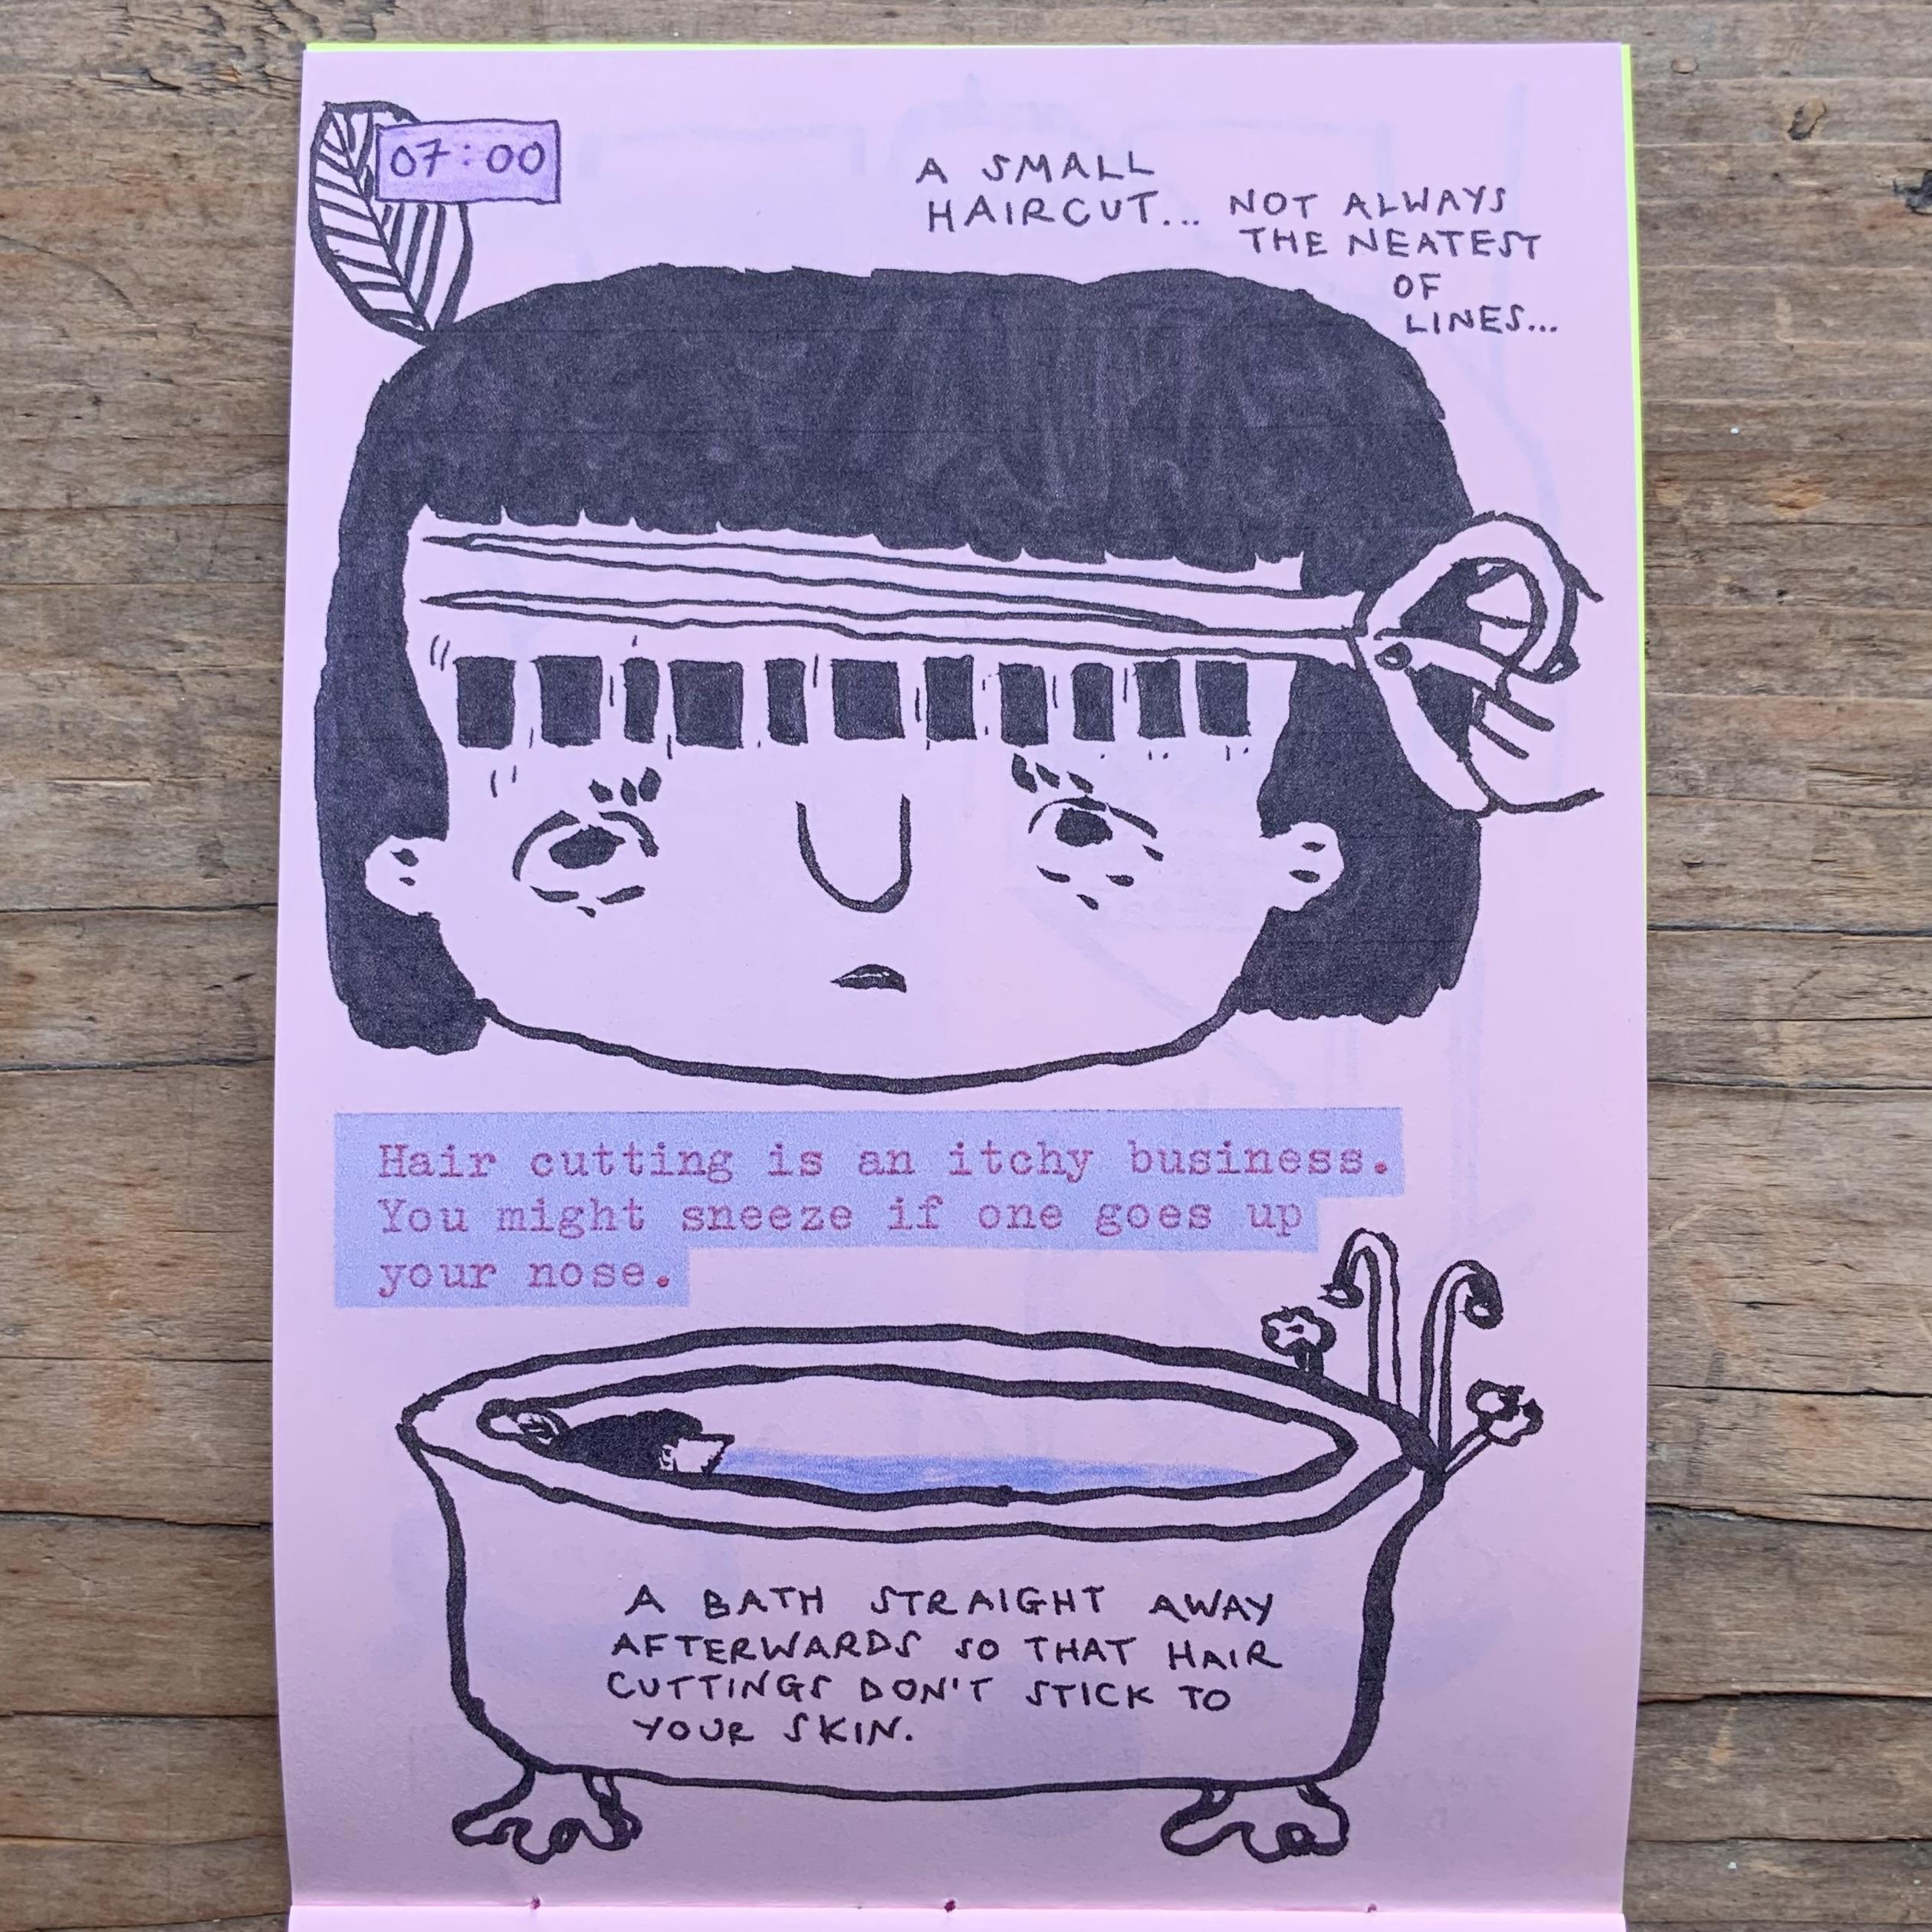 07:00
A SMALL
HAIRCUT...
NOT ALWAYS
THE NEATEST
OF
LINES...
Hair cutting is an itchy business.
You might sneeze if one goes up
your nose.
A BATH STRAIGHT AWAY
AFTERWARDS SO THAT HAIR
CUTTINGS DON'T STICK TO
YOUR SKIN.